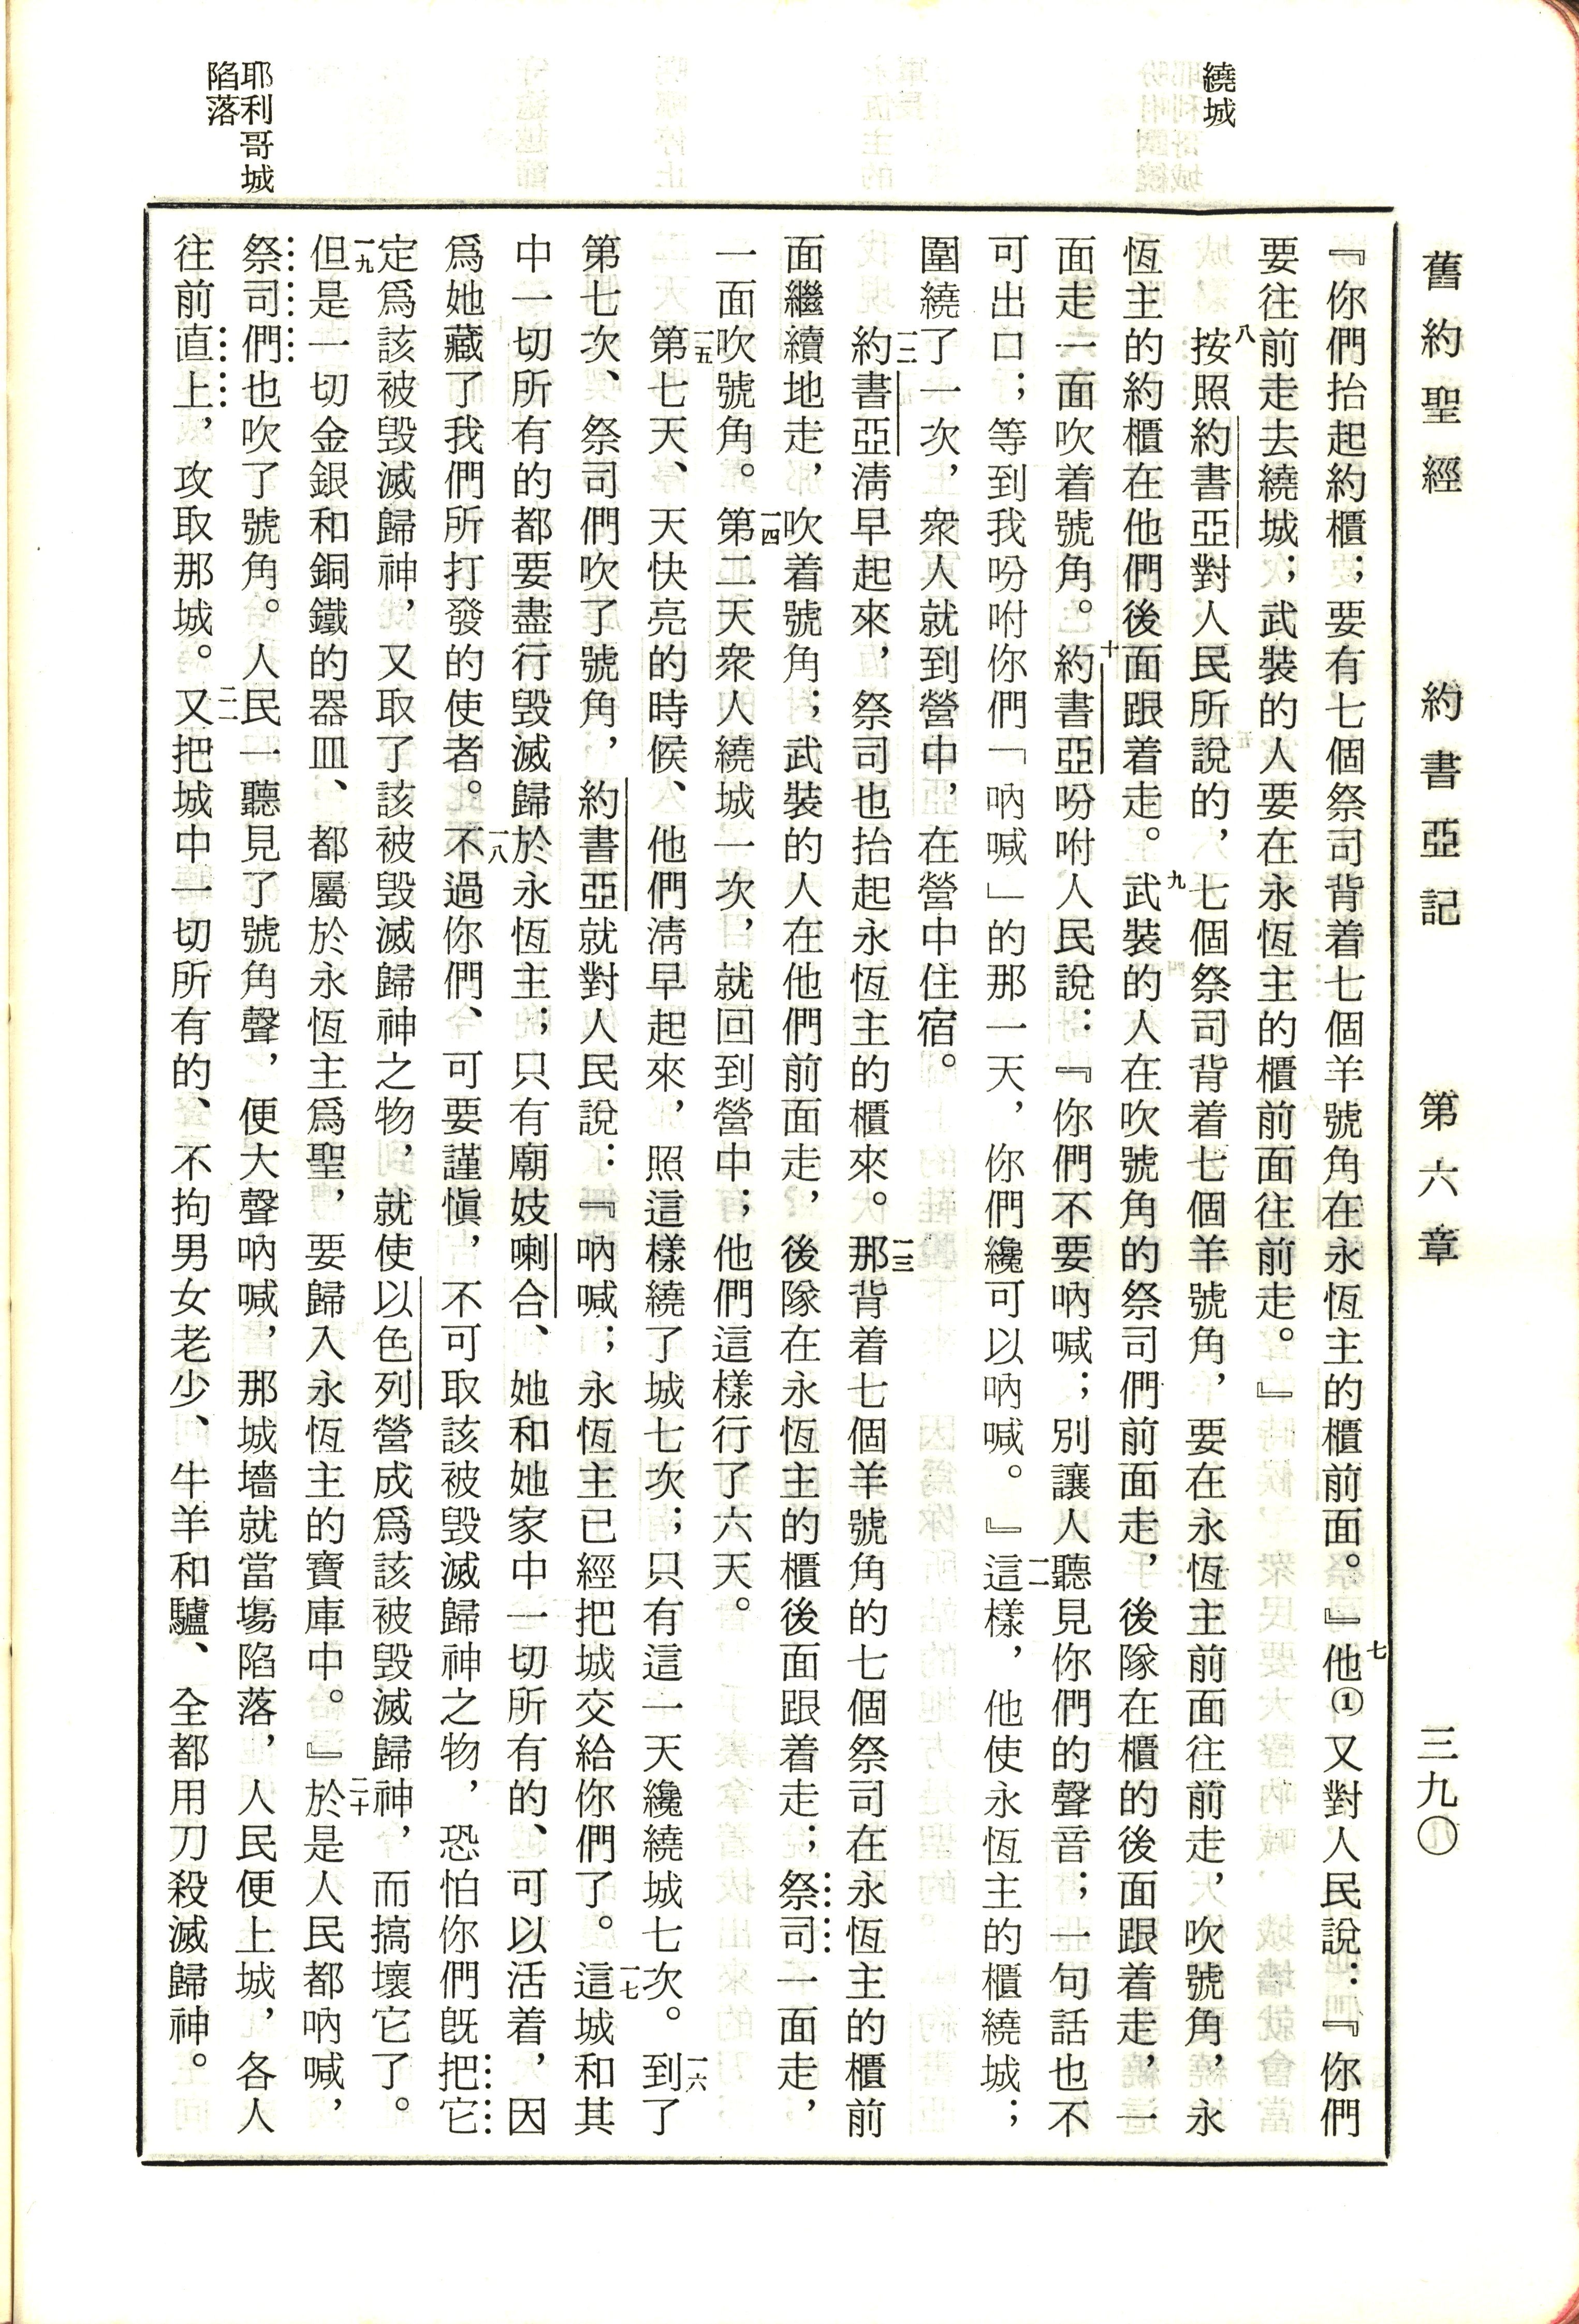 舊約聖經　約書亞記　第六章　三九〇
繞城
耶利哥城
陷落
『你們抬起約櫃；要有七個祭司背着七個羊號角在永恆主的櫃前面。』七他①又對人民說：『你們
要往前走去繞城；武裝的人要在永恆主的櫃前面往前走。』
八按照約書亞對人民所說的，七個祭司背着七個羊號角，要在永恆主前面往前走，吹號角，永
恆主的約櫃在他們後面跟着走。九武裝的人在吹號角的祭司們前面走，後隊在櫃的後面跟着走，一
面走一面吹着號角。十約書亞吩咐人民說：『你們不要吶喊；別讓人聽見你們的聲音；一句話也不
可出口；等到我吩咐你們「吶喊」的那一天，你們纔可以吶喊。』一一這樣，他使永恆主的櫃繞城；
圍繞了一次，衆人就到營中，在營中住宿。
一二約書亞淸早起來，祭司也抬起永恆主的櫃來。一三那背着七個羊號角的七個祭司在永恆主的櫃前
面繼續地走，吹着號角；武裝的人在他們前面走，後隊在永恆主的櫃後面跟着走；祭司一面走，
一面吹號角。一四第二天衆人繞城一次，就回到營中；他們這樣行了六天。
一五第七天、天快亮的時候、他們淸早起來，照這樣繞了城七次；只有這一天纔繞城七次。一六到了
第七次、祭司們吹了號角，約書亞就對人民說：『吶喊；永恆主已經把城交給你們了。一七這城和其
中一切所有的都要盡行毀滅歸於永恆主；只有廟妓喇合、她和她家中一切所有的、可以活着，因
爲她藏了我們所打發的使者。一八不過你們、可要謹愼，不可取該被毀滅歸神之物，恐怕你們旣把它
定爲該被毀滅歸神，就又取了該被毀滅歸神之物，就使以色列營成爲該被毀滅歸神，而搞壞它了。
一九但是一切金銀和銅鐵的器皿、都屬於永恆主爲聖，要歸入永恆主的寶庫中。』二十於是人民都吶喊，
祭司們也吹了號角。人民一聽見了號角聲，便大聲吶喊，那城墻就當塲陷落，人民便上城，各人
往前直上，攻取那城。二一又把城中一切所有的、不拘男女老少、牛羊和驢、全都用刀殺滅歸神。